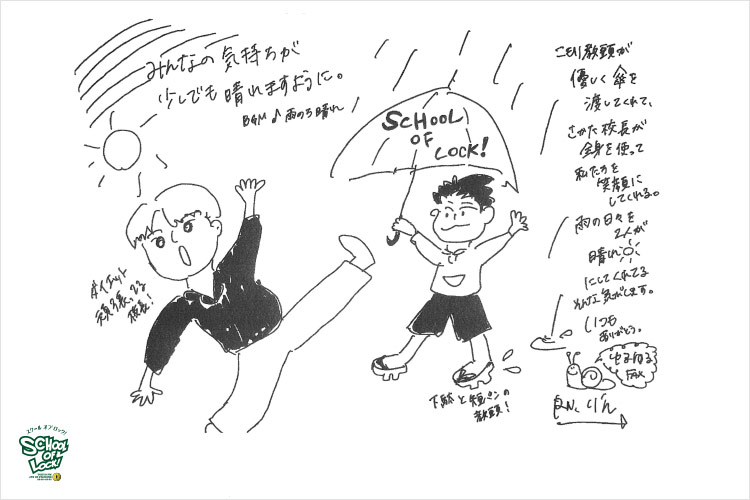 みんなの気持ちが
少しでも晴れますように。
BGM♪雨のち晴れ
SCHOOL
OF
LOCK!
こもり教頭が
優しく傘を
渡してくれて、
さかた校長が
全身を使って
私たちを
笑顔に
してくれる。
雨の日々を
2人が
晴れ
にしてくれてる
そんな気がします。
いつも
ありがとう。
ダイエット
頑張ってる
校長!
下駄と短パンの
教頭!
ゆるゆる
FAX
RN.りん
スクール オブ ロック!
SCHOOL
OF
LOCK!